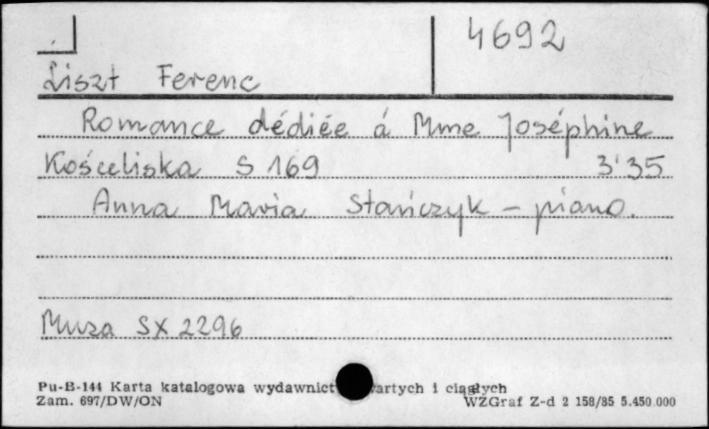 4692
Liszt Ferenc
Romance dédiée á Mme Joséphine
Kościeliska S 169 3'35
Anna Maria Stańczyk - piano.
Muza SX 2296
Pu-B-144 Karta katalogowa wydawnict artych i ciągłych
Zam. 697/DW/ON WZGraf Z-d 2 158/85 5.450.000